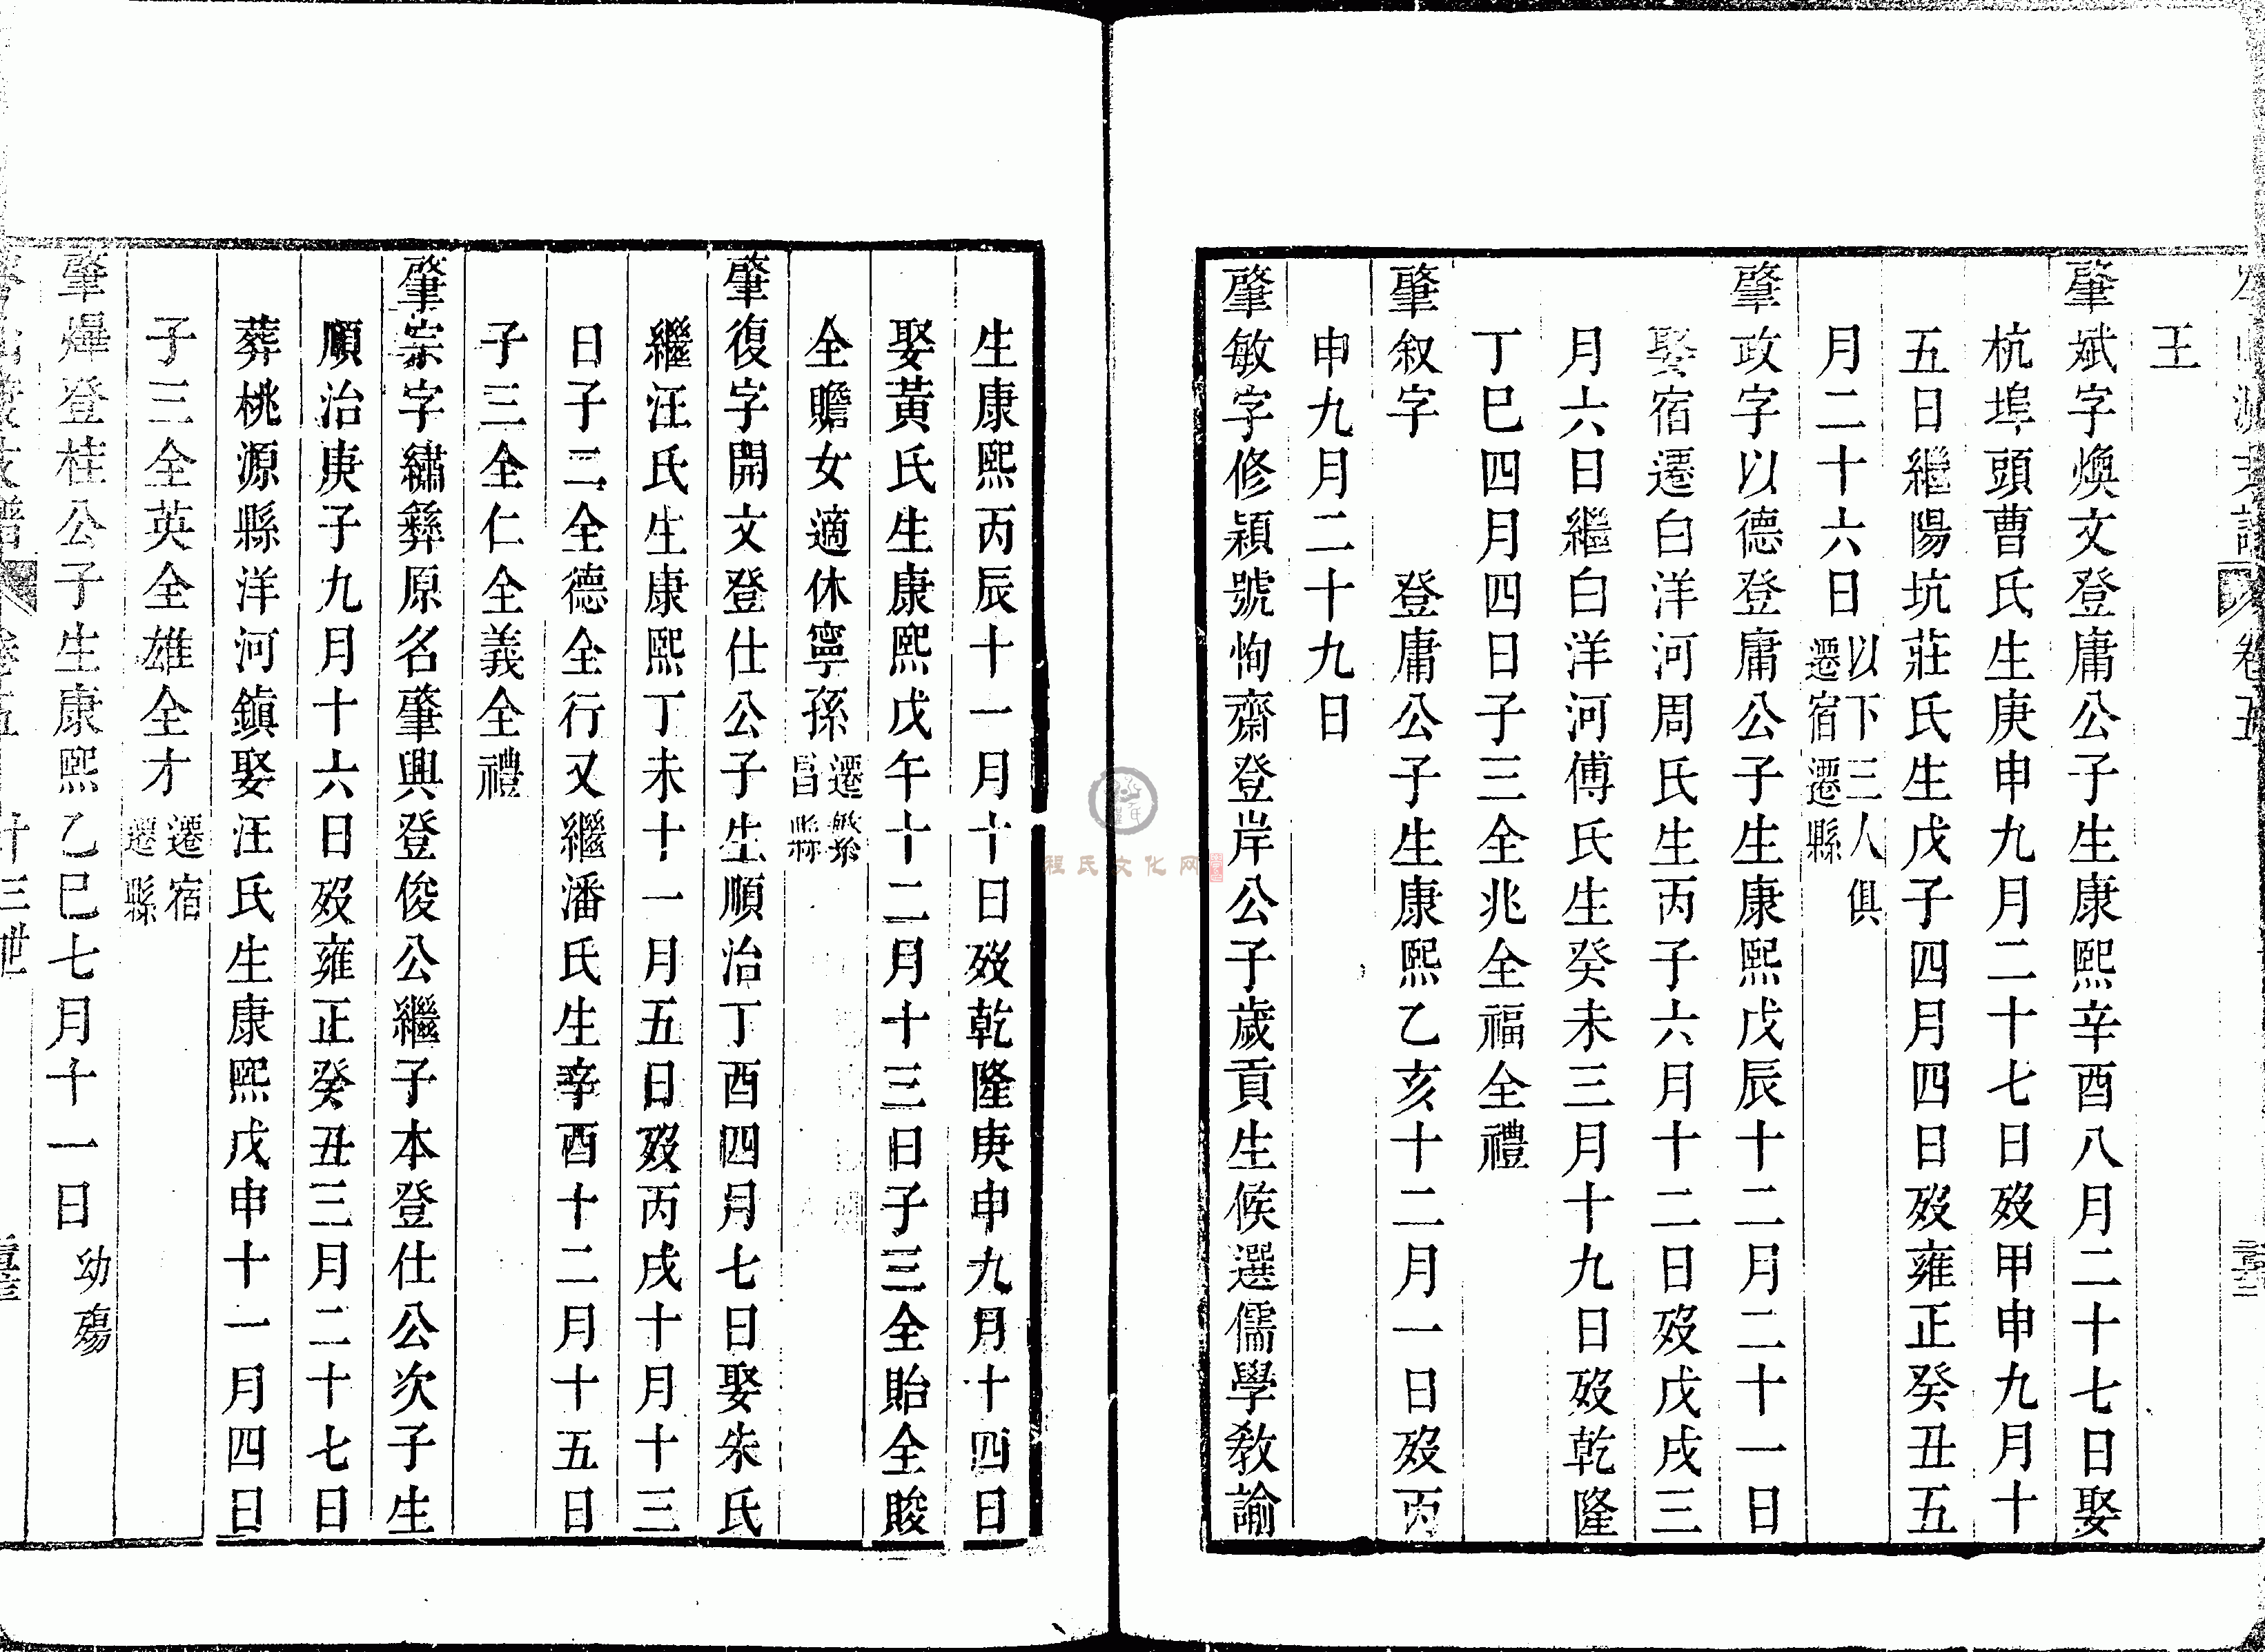 王
肇斌字煥文登庸公子生康熙辛酉八月二十七日娶
杭埠頭曹氏生庚申九月二十七日歿甲申九月十
五日繼陽坑莊氏生戊子四月四日歿雍正癸丑五
月二十六日以下三人俱遷宿遷縣
肇政字以德登庸公子生康熙戊辰十二月二十一日
娶宿遷白洋河周氏生丙子六月十二日歿戊戌三
月六日繼白洋河傅氏生癸未三月十九日歿乾隆
丁巳四月四日子三全兆全福全禮
肇叙字 登庸公子生康熙乙亥十二月一日歿丙
申九月二十九日
肇敏字修穎號恂齋登岸公子歲貢生候選儒學教諭
生康熙丙辰十一月十日歿乾隆庚申九月十四日
娶黃氏生康熙戊午十二月十三日子三全貽全賧
全贍女適休寧孫遷繁昌縣
肇復字開文登仕公子生順治丁酉四月七日娶朱氏
繼汪氏生康熙丁未十一月五日歿丙戌十月十三
日子二全德全行又繼潘氏生辛酉十二月十五日
子三全仁全義全禮
肇宗字繡彝原名肇興登俊公繼子本登仕公次子生
順治庚子九月十六日歿雍正癸丑三月二十七日
葬桃源縣洋河鎮娶汪氏生康熙戊申十一月四日
子三全英全雄全才遷宿遷縣
肇燁登桂公子生康熙乙巳七月十一日幼殤
卷五 十三世
程氏文化网